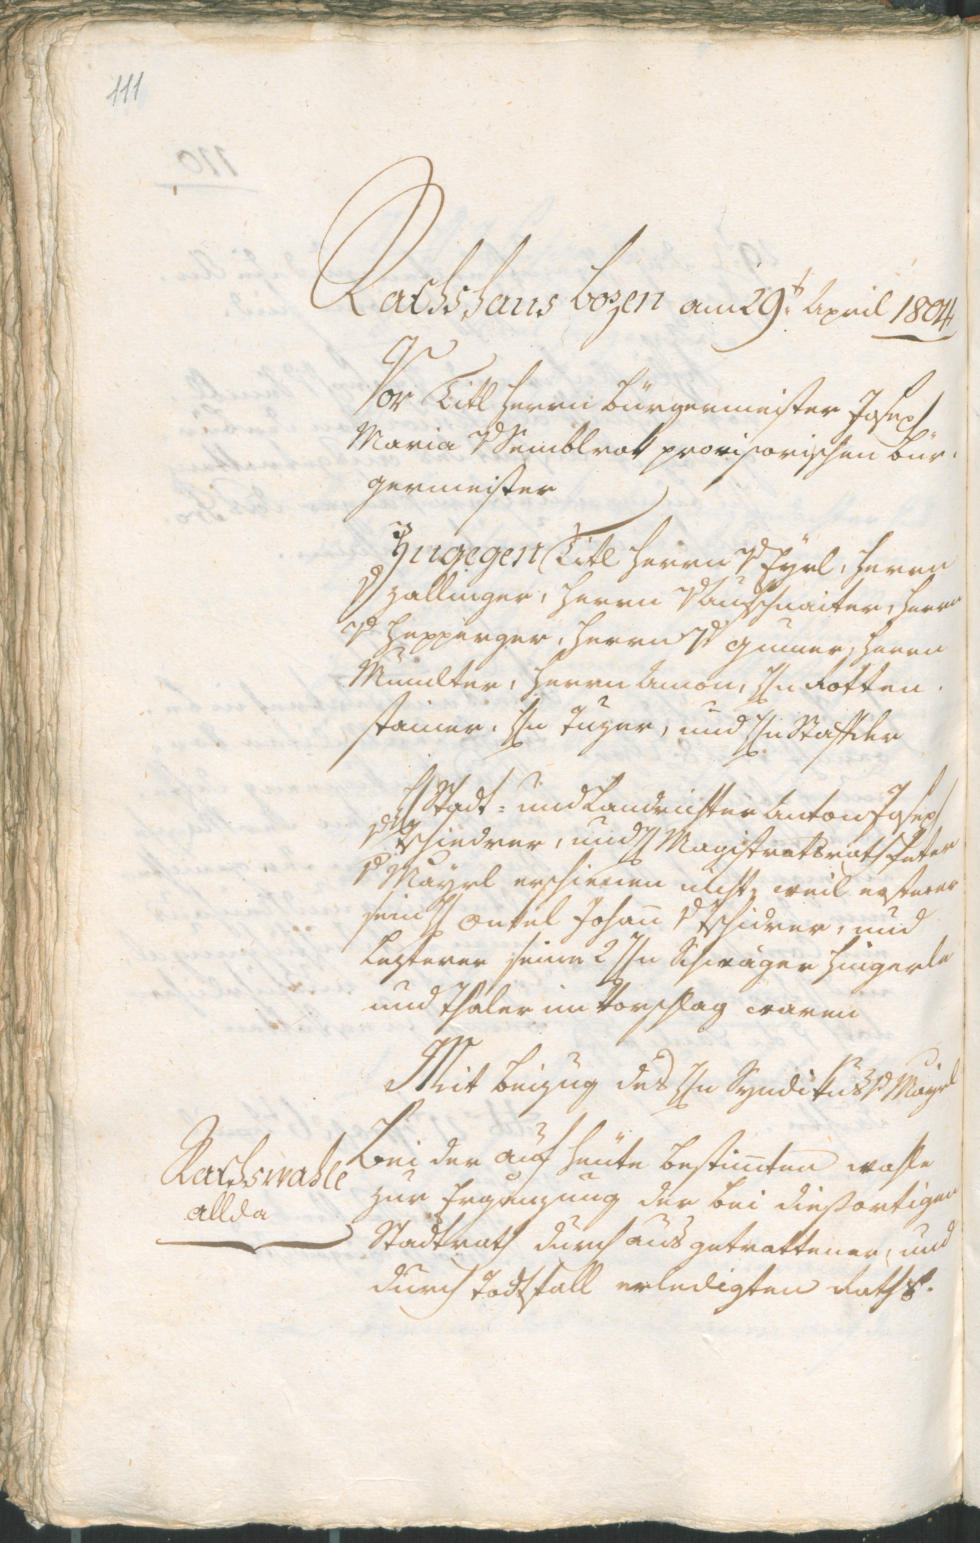 111
Rathshaus bozen am 29t April 1804
Vor Titl Herrn Bürgermeister Joseph
Maria v Remblrott provisorischen Bür-
germeister
Zugegen Titl Herrn v Eyrl, Herrn
v Zallinger, Herrn v Aufschnaiter, Herrn
v Hepperger, Herrn v Gumer, Herrn
Mumlter, Herrn Amon, Hn Rotten
stainer, Hn Tuzer, und Hn Staffler
H Stadt- und Landrichter Anton Joseph
v Tschiedrer, und H Magistratsrath Peter
v Mayrl erschienen nicht, weil ersterer
sein H Onkel Johann v Tschidrer, und
Lezterer seine 2 Hn Schwäger Hingerle
und Thaler im Vorschlag waren
Mit beizug des Hn Syndikus v Mayrl
Rathswahl
allda
Bei der auf heute bestimten wahle
zur Ergänzung der bei dießortigen
Stadtrath durch ausgetrettener, und
durch Todtfall erledigten Raths-